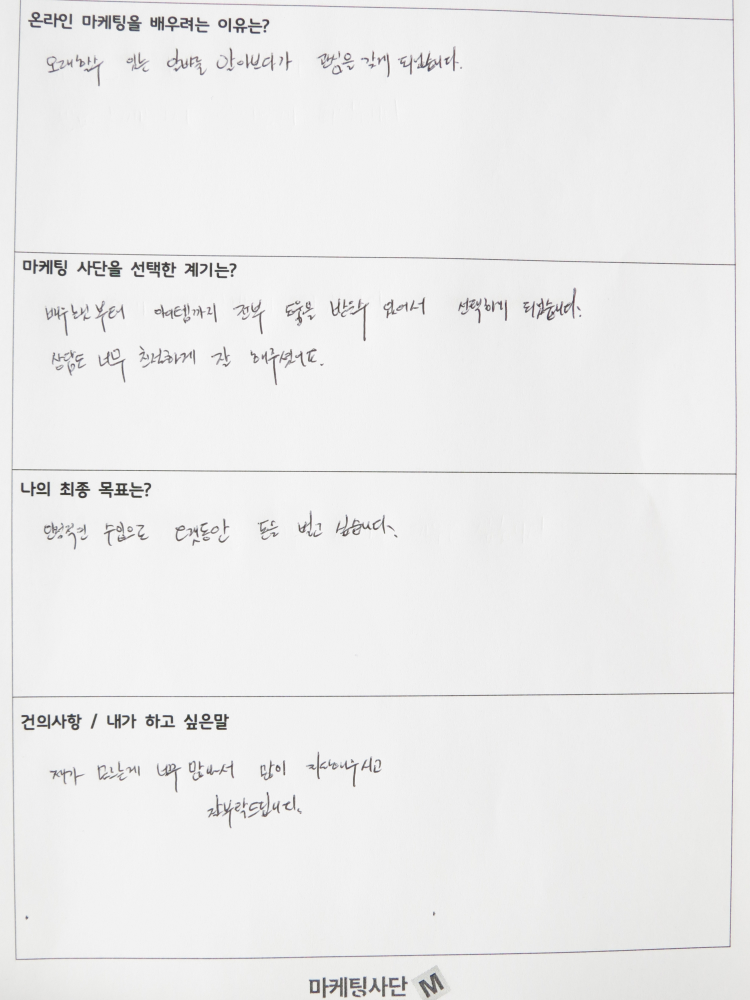 온라인 마케팅을 배우려는 이유는?
오래할수 있는 알바를 알아보다가 관심을 갖게 되었습니다.
마케팅 사단을 선택한 계기는?
배우는것부터 전부 도움을 받을수 있어서 선택하게 되었습니다.
상담도 너무 친절하게 잘 해주셨어요.
나의 최종 목표는?
안정적인 수입으로 오랫동안 돈을 벌고 싶습니다.
건의사항 / 내가 하고 싶은말
제가 모르는게 너무 많아서 많이 지시해주시고
잘부탁드립니다.
마케팅사단 M